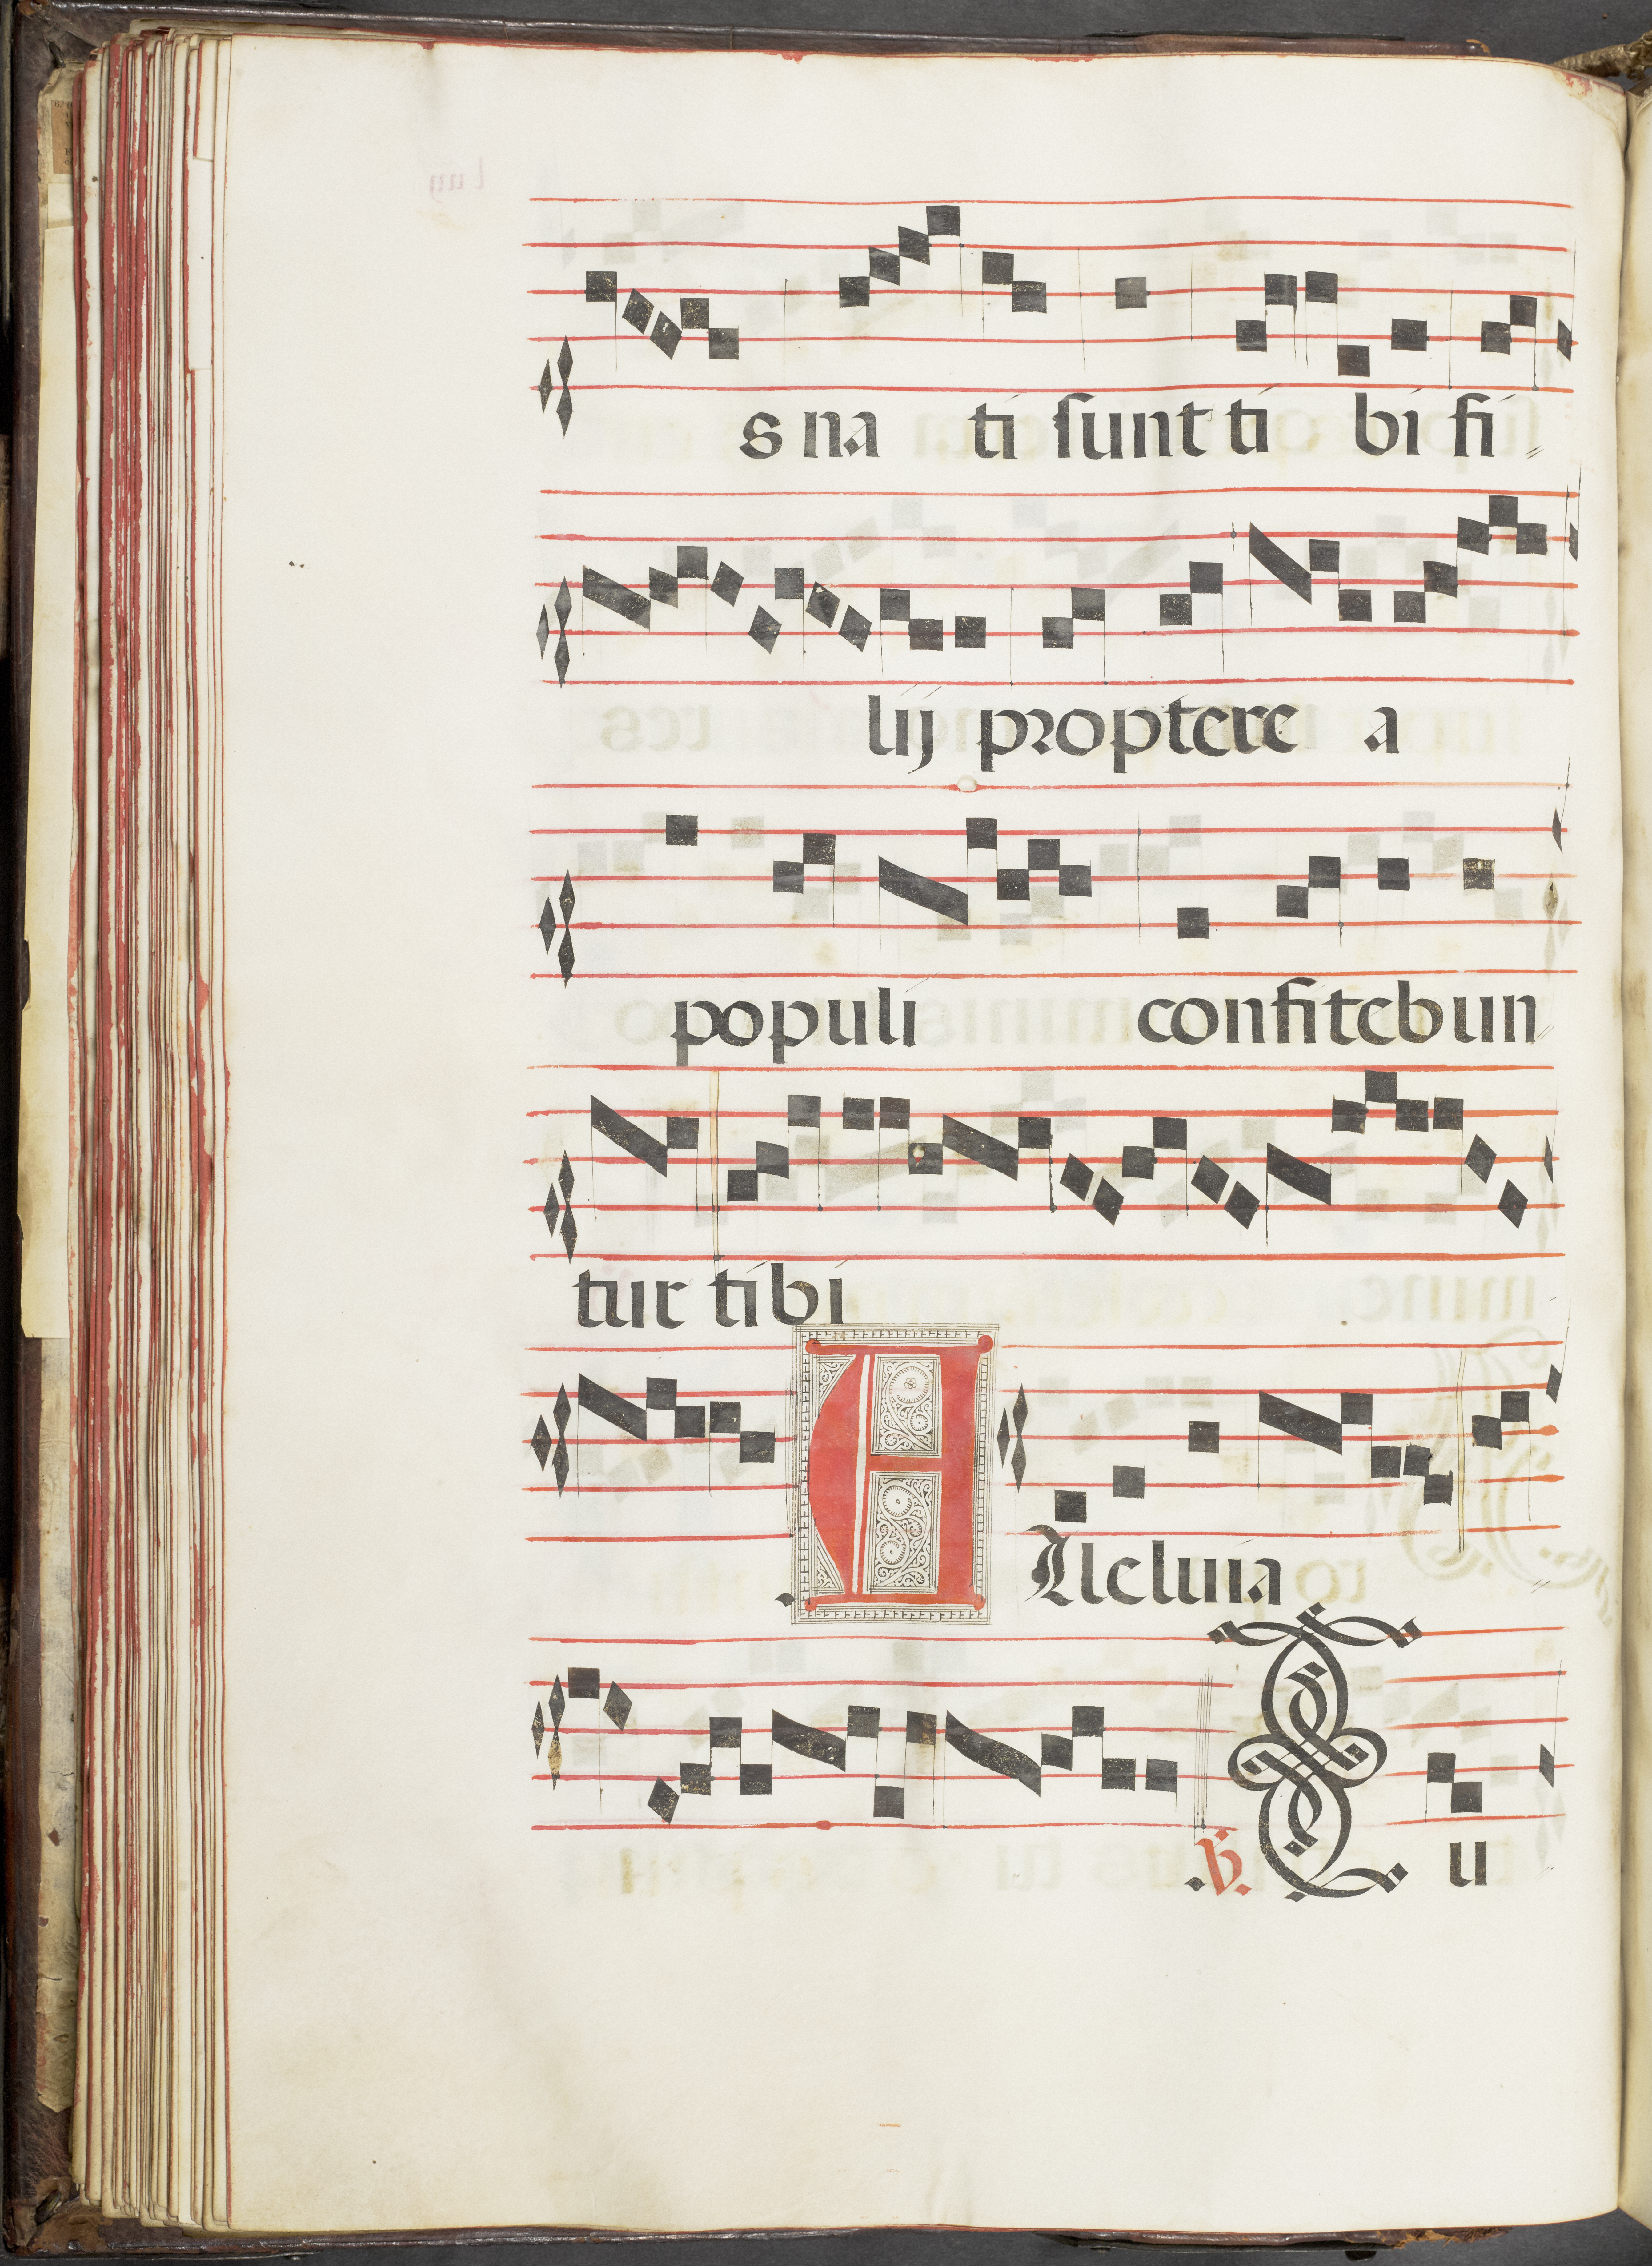 s na ti sunt ti bi fi
lij proptere a
populi confitebun
tur tibi
Alleluia
.℣. T u